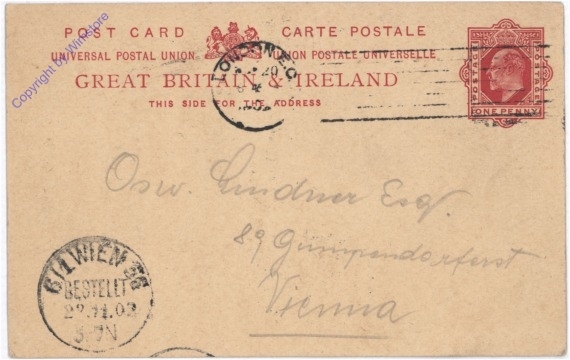 POST CARD CARTE POSTALE
UNIVERSAL POSTAL UNION UNION POSTALE UNIVERSELLE
GREAT BRITAIN & IRELAND
THIS SIDE FOR THE ADDRESS
POSTAGE ONE PENNY
LONDON. E.C.
Copyright by Winstore
Osw. Lindner Esq.
89 Gumpendorferst
Vienna
6/1 WIEN
BESTELLT
22.11.02